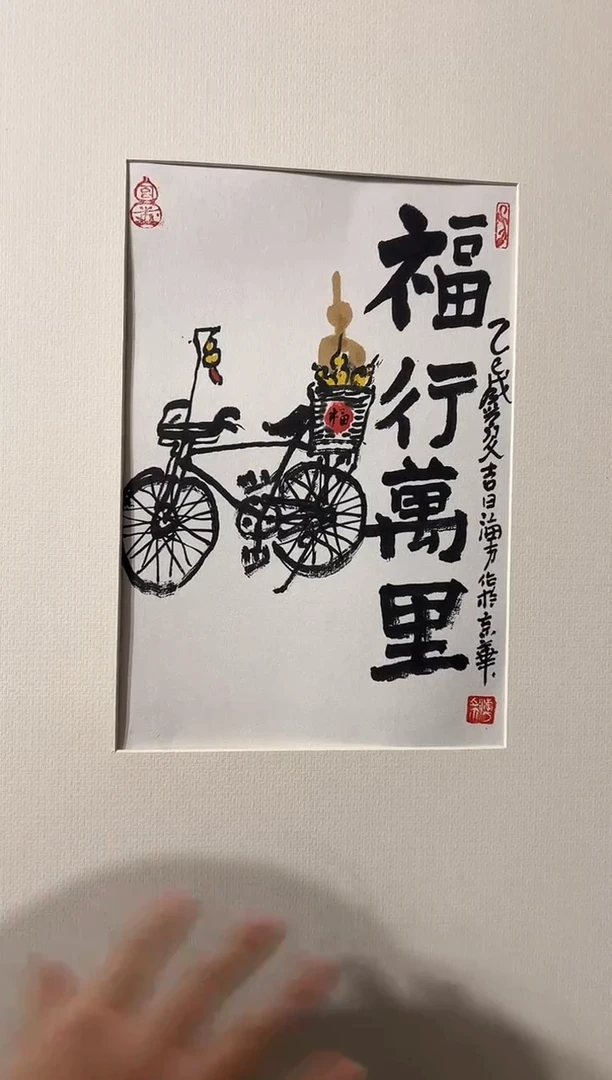 福行萬里
乙巳盛夏吉日海方作於京華
福